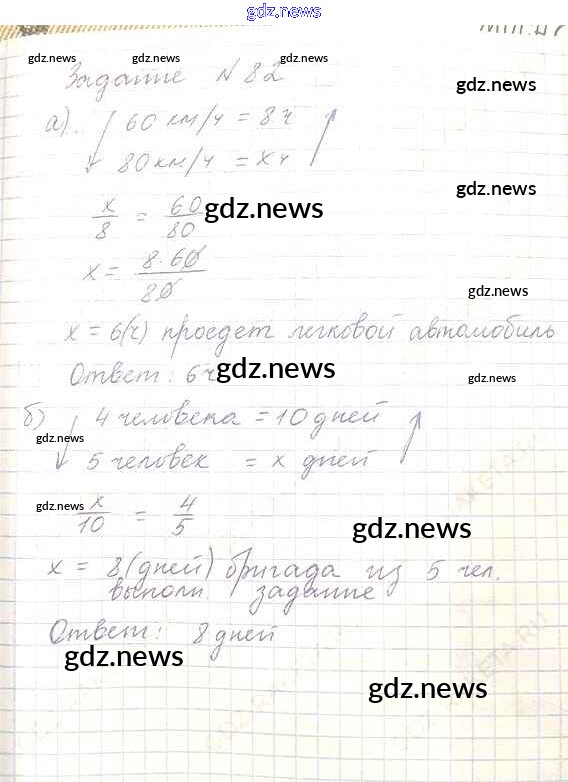 gdz.news
gdz.news gdz.news
Задание N 82
gdz.news
а). 60 км/ч = 8 ч
80 км/ч = х ч
gdz.news
х/8 = 60/80
gdz.news
х = 8·60/80
gdz.news
х = 6(ч) проедет легковой автомобиль
Ответ: 6ч
gdz.news
gdz.news
б) 4 человека = 10 дней
gdz.news
5 человек = х дней
gdz.news
х/10 = 4/5
gdz.news
х = 8 (дней) бригада из 5 чел.
выполн. задание
Ответ: 8 дней
gdz.news
gdz.news